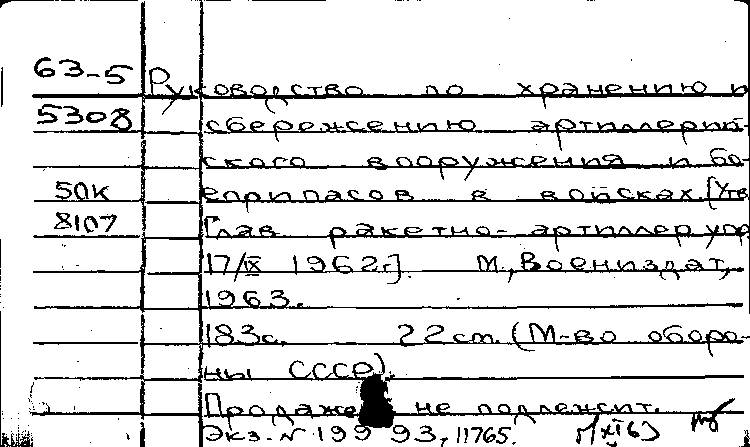 63-5 Руководство по хранению и
5308 сбережению артиллерий-
ского вооружения и бо-
50к еприпасов в войсках. [Утв
8107 Глав ракетно-артиллер упр
17/IX 1962г.]. М., Воениздат,
1963.
183с. 22 см. (М-во оборо-
ны СССР).
Продаже не подлежит.
Экз. N 199 93, 11765. XI 63